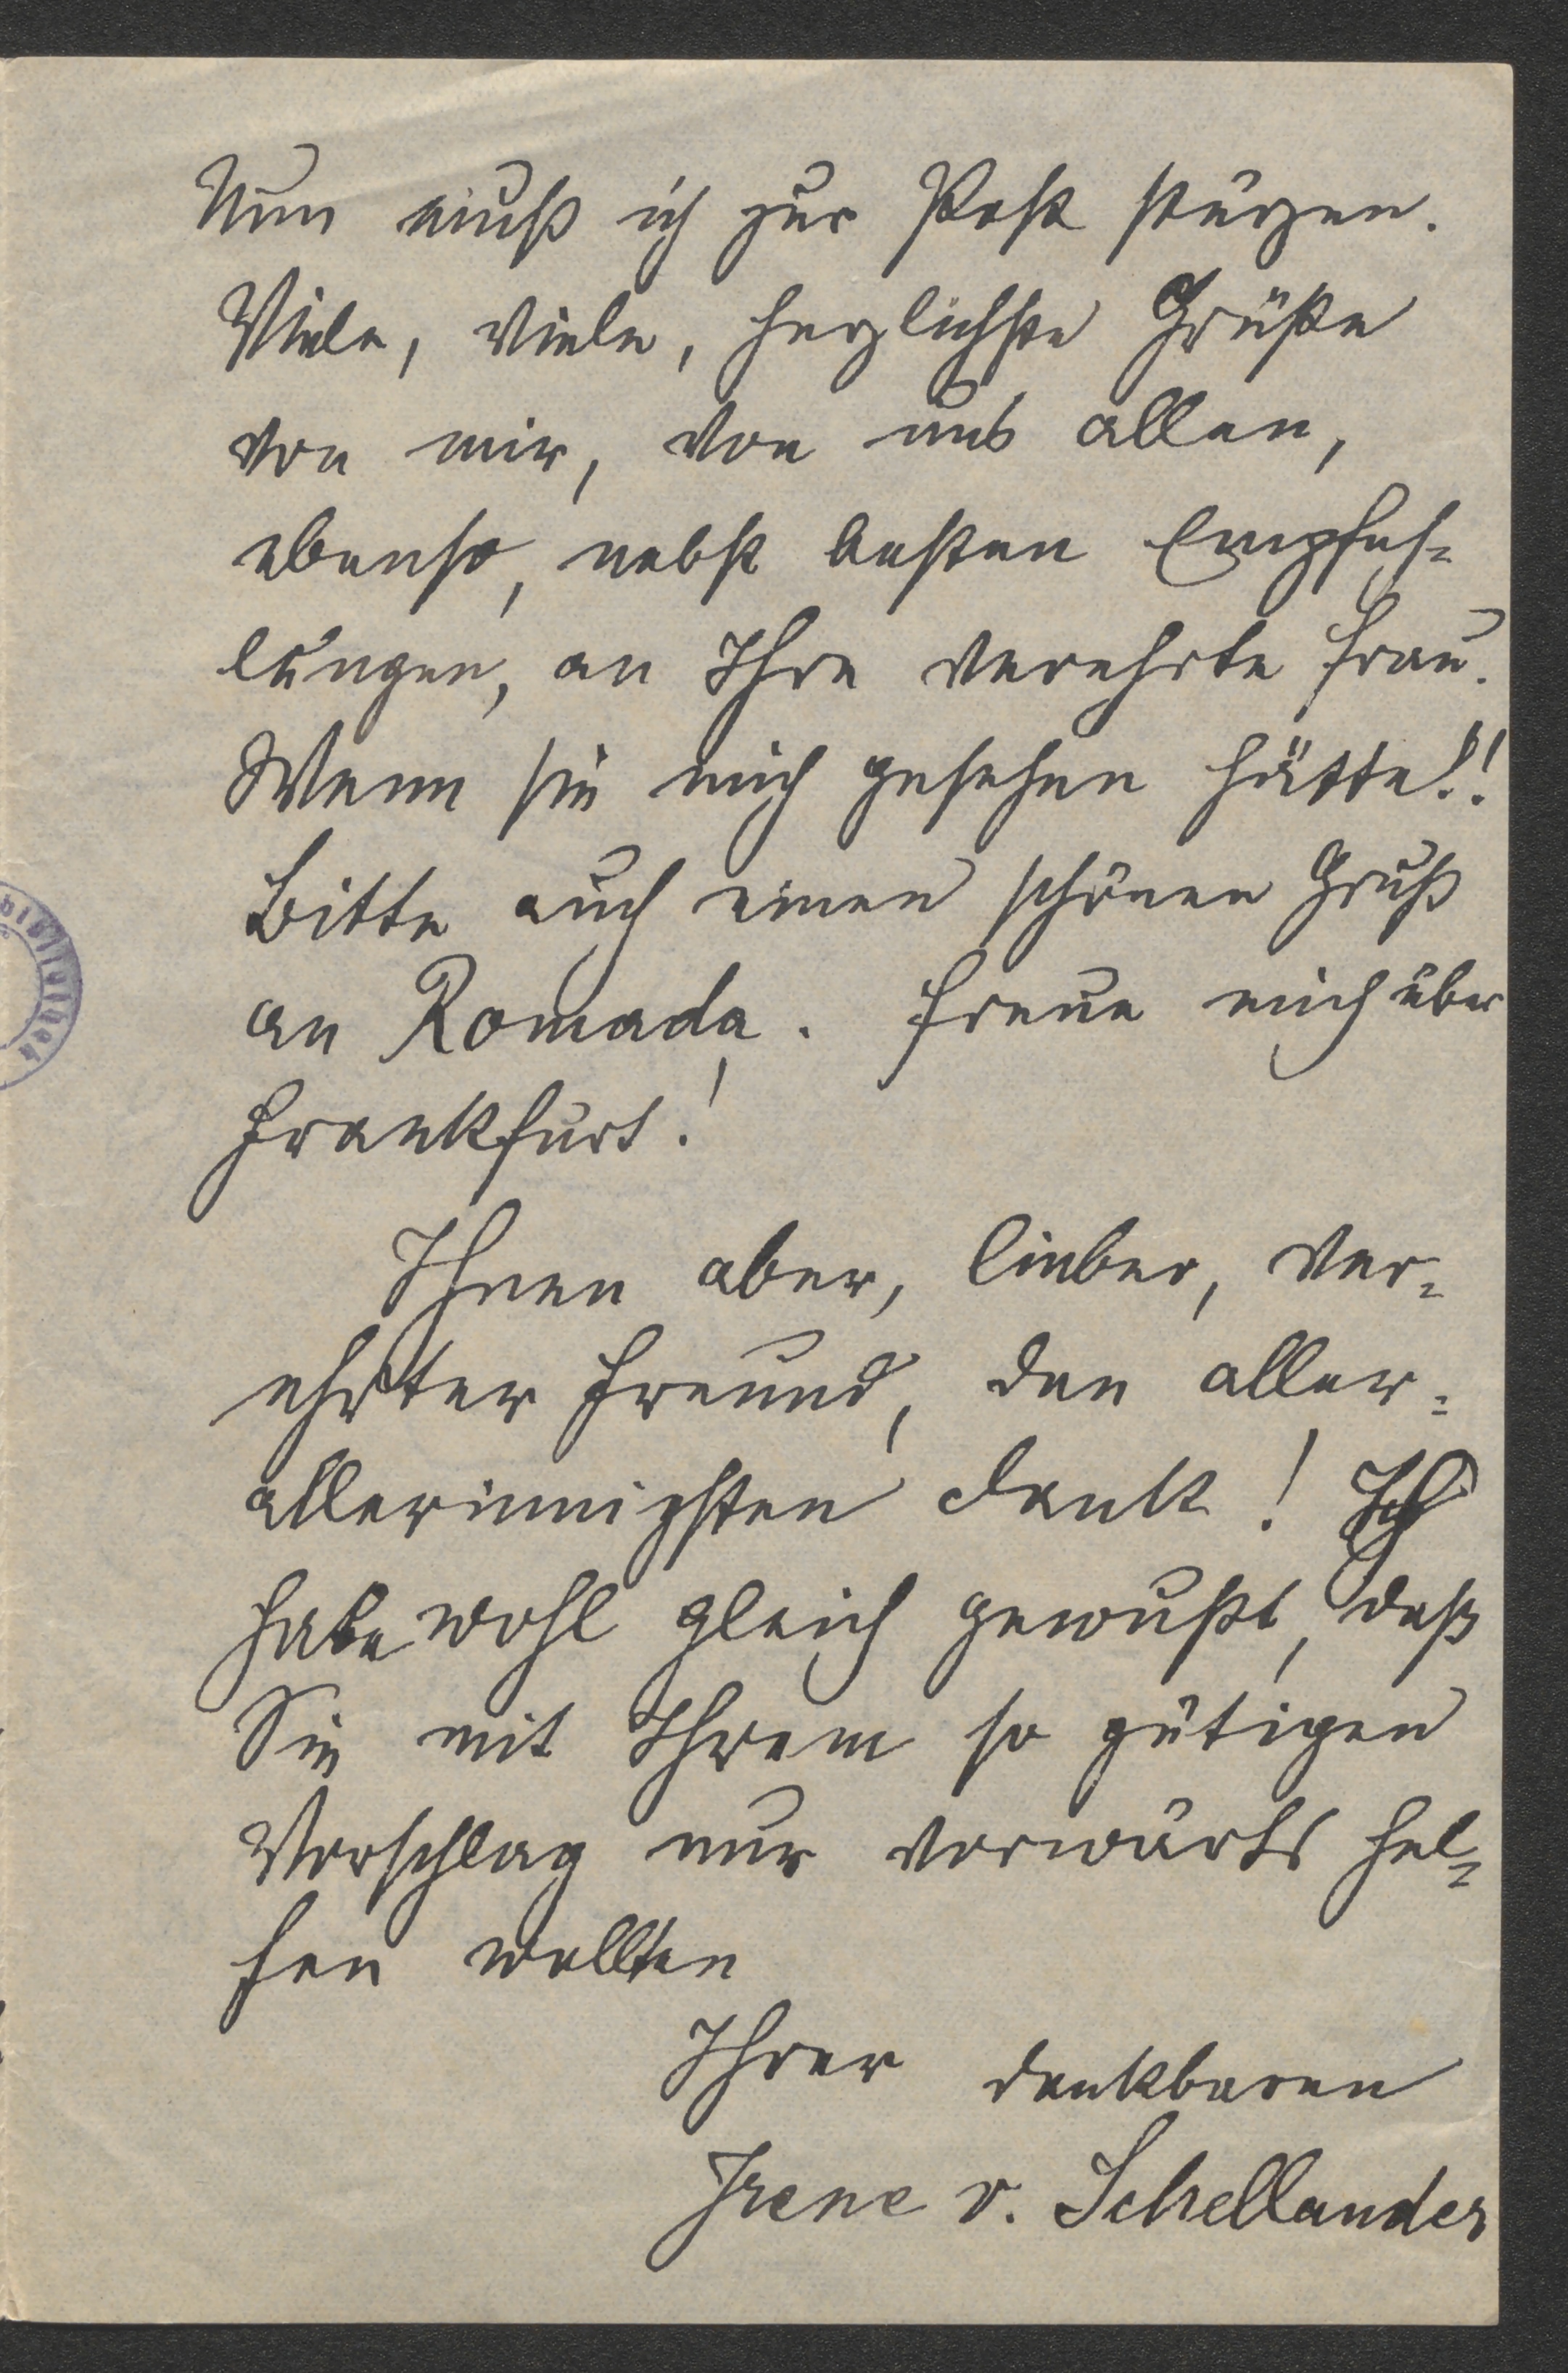 Nun muß ich zur Post stürzen.
Viele, viele, herzlichste Grüße
von mir, von uns allen,
ebenso, nebst besten Empfeh-
lungen, an Ihre verehrte Frau.
Wenn sie mich gesehen hätte!!
Bitte auch einen schönen Gruß
an Romada. Freue mich über
Frankfurt!
Ihnen aber, lieber, ver-
ehrter Freund, den aller-
allerinnigsten Dank! Ich
habe wohl gleich gewußt, daß
Sie mit Ihrem so gütigen
Vorschlag nur vorwärts hel-
fen wollten
Ihrer dankbaren
Irene v. Schellander